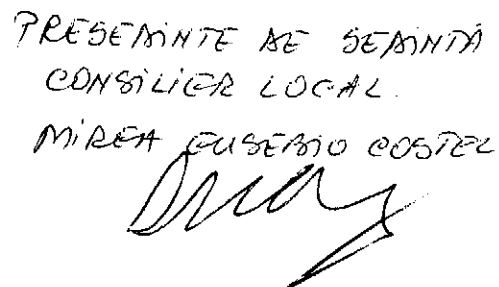 PREȘEDINTE DE ȘEDINȚĂ
CONSILIER LOCAL
MIREA EUSEBIO COSTEL